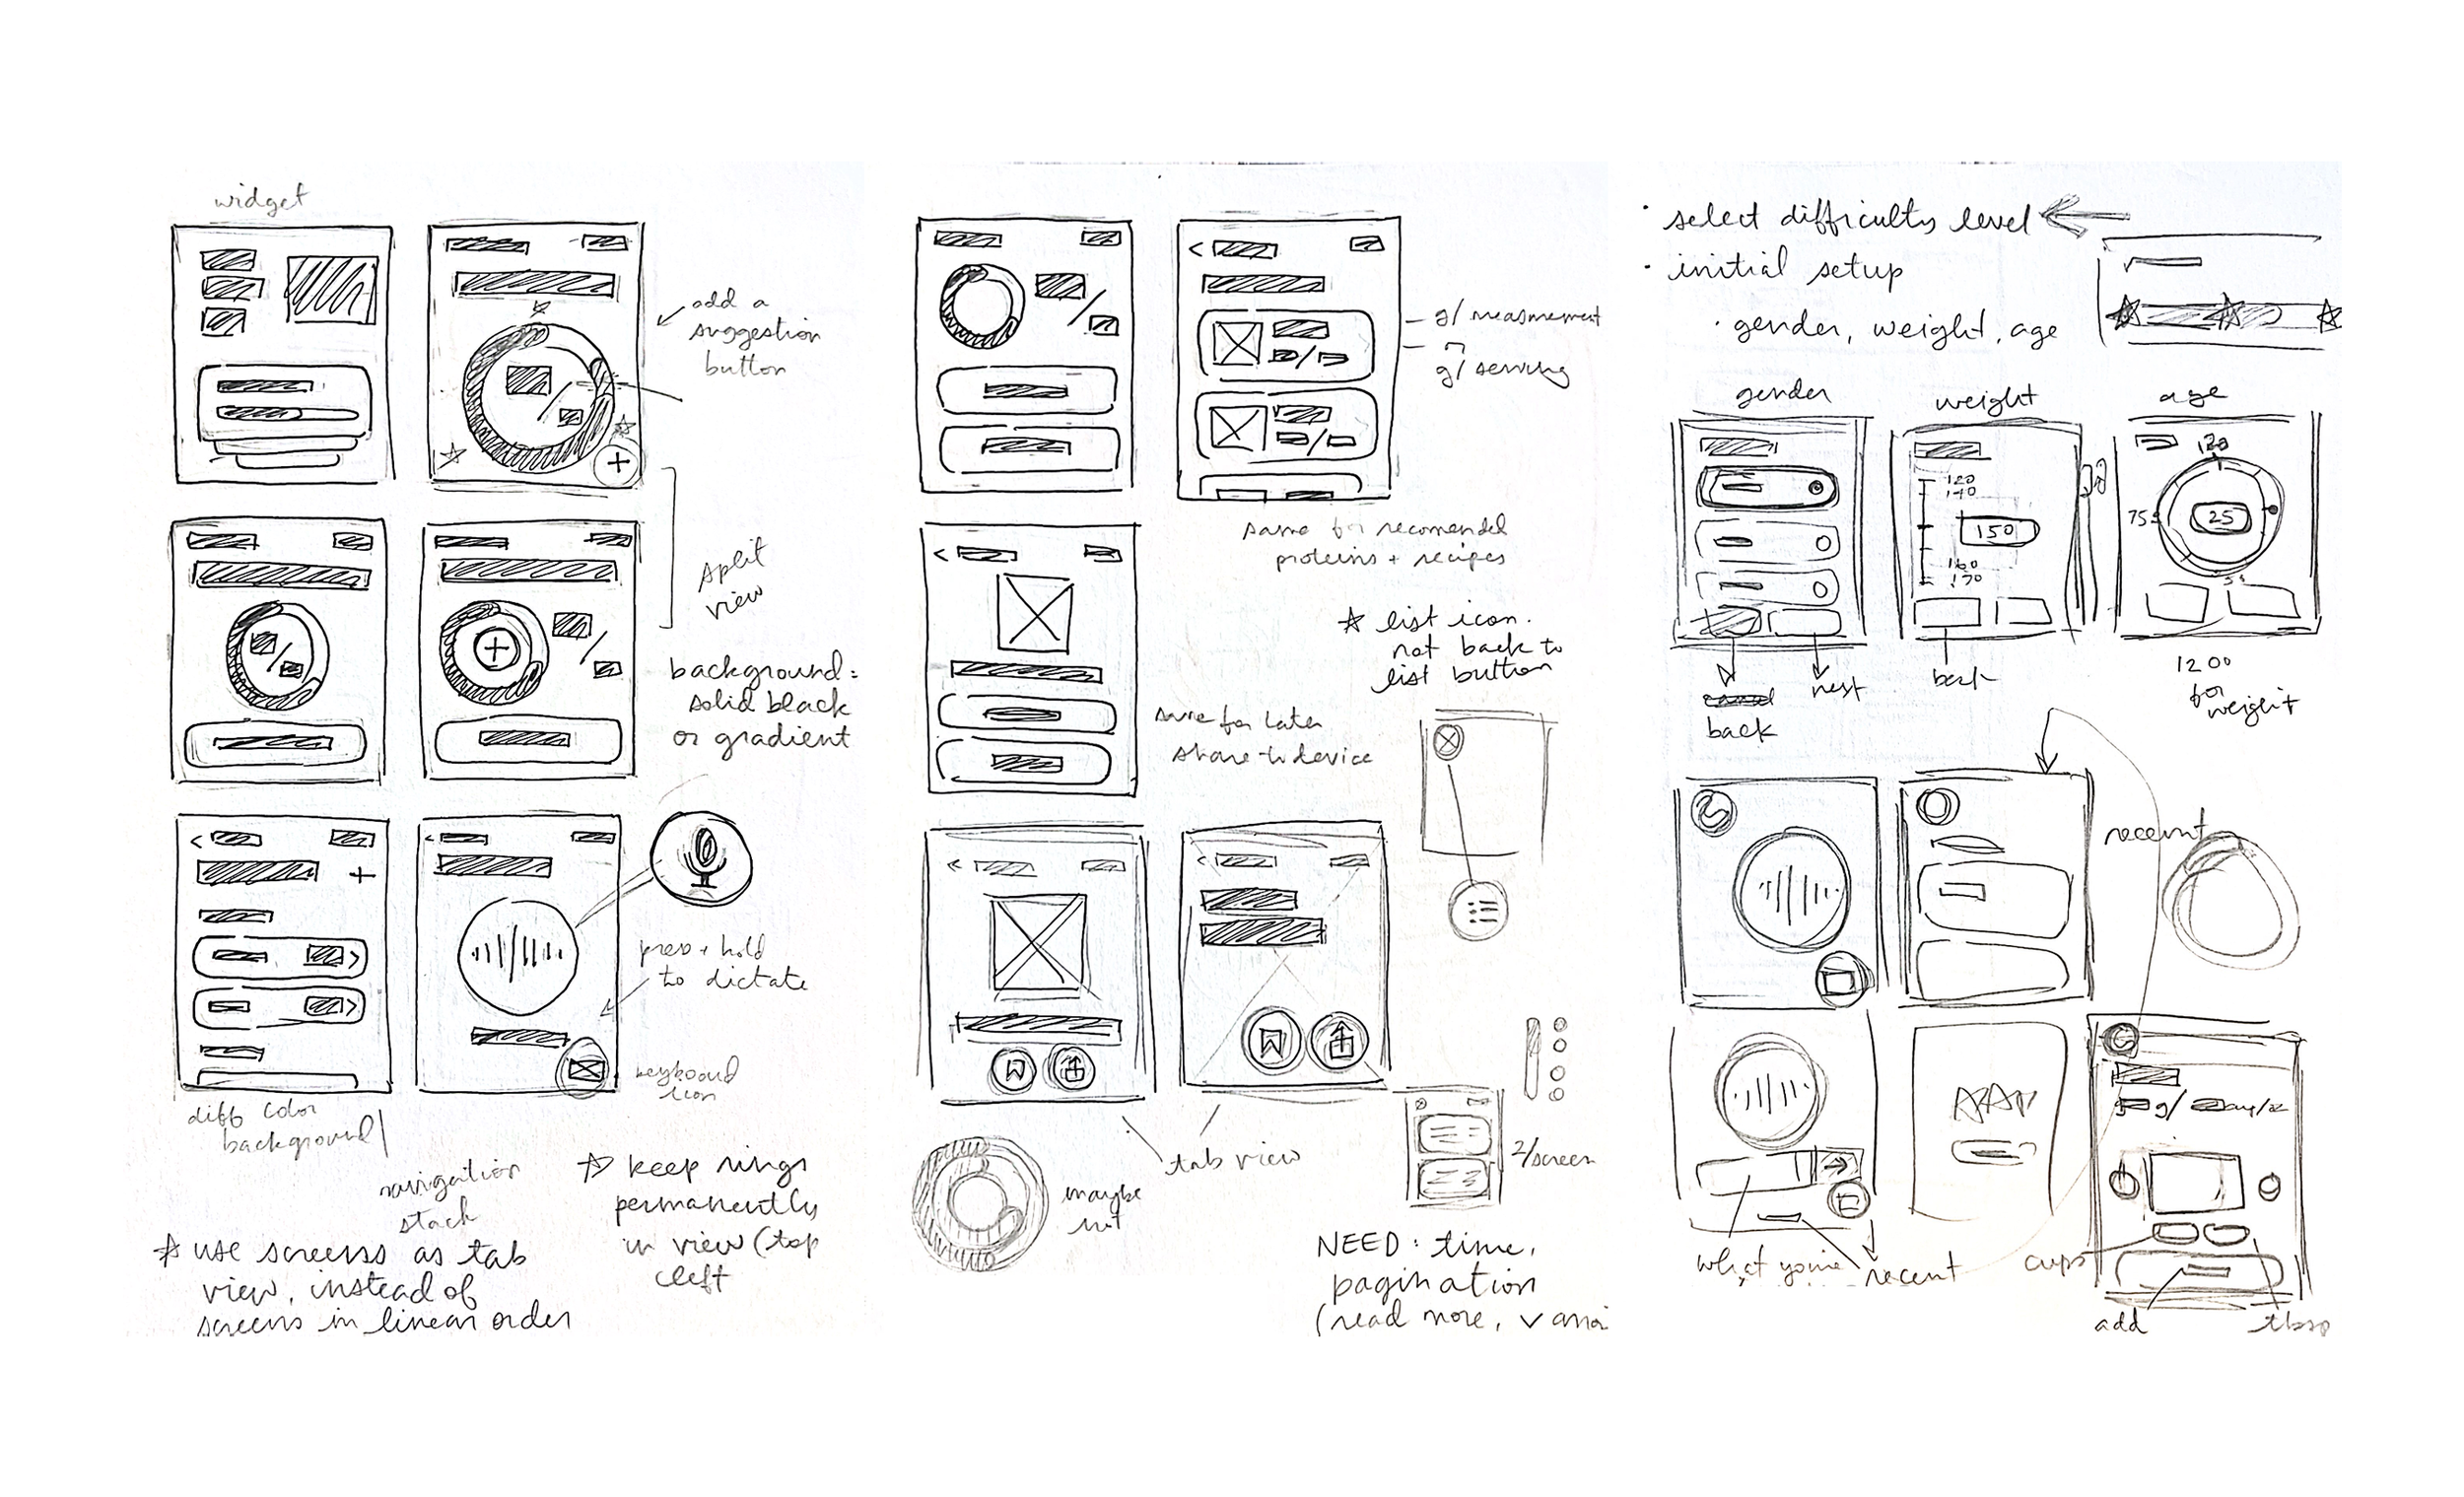 widget
add a
suggestion
button
split
view
background:
solid black
or gradient
press + hold
to dictate
keyboard
icon
diff color
background
navigation
stack
☆ use screens as tab
view, instead of
screens in linear order
☆ keep rings
permanently
in view (top
left
g/ measurement
g/ serving
same for recomended
proteins + recipes
☆ list icon.
not back to
list button
save for later
share to device
tab view
maybe
not
2/screen
NEED: time,
pagination
(read more,
· select difficulty level
· initial setup
· gender, weight, age
gender
weight
age
120
140
150
160
170
120
75
25
back
next
back
1200
for
weight
recent
what you're
recent
cups
add
tbsp